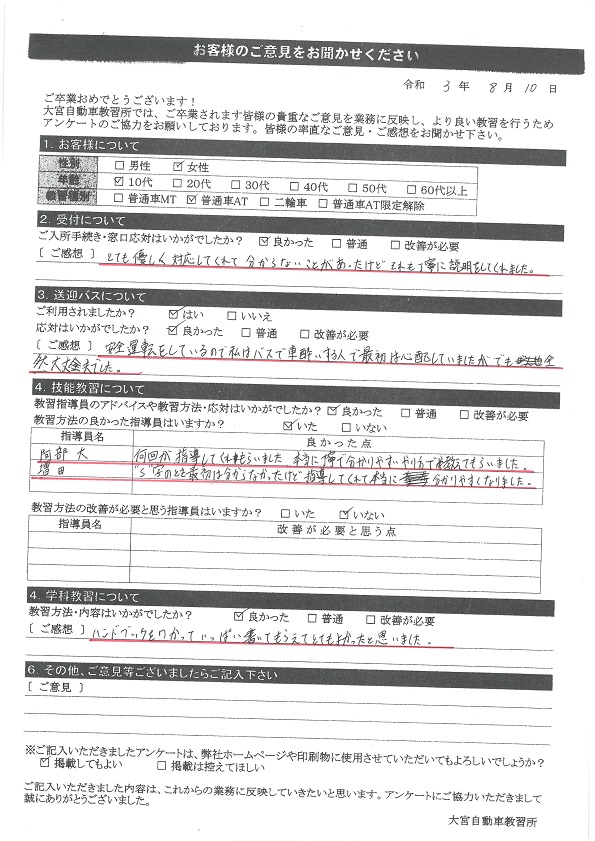 お客様のご意見をお聞かせください
令和 3 年 8 月 10 日
ご卒業おめでとうございます！
大宮自動車教習所では、ご卒業されます皆様の貴重なご意見を業務に反映し、より良い教習を行うため
アンケートのご協力をお願いしております。皆様の率直なご意見・ご感想をお聞かせ下さい。
1. お客様について
性別 □ 男性 ☑ 女性
年齢 ☑ 10代 □ 20代 □ 30代 □ 40代 □ 50代 □ 60代以上
教習種別 □ 普通車MT ☑ 普通車AT □ 二輪車 □ 普通車AT限定解除
2. 受付について
ご入所手続き・窓口応対はいかがでしたか？ ☑ 良かった □ 普通 □ 改善が必要
[ ご感想 ] とても優しく対応してくれて分からないことがあったけどそれも丁寧に説明をしてくれました。
3. 送迎バスについて
ご利用されましたか？ ☑ はい □ いいえ
応対はいかがでしたか？ ☑ 良かった □ 普通 □ 改善が必要
[ ご感想 ] 安全運転をしているので私はバスで車酔いする人で最初は心配していましたがでも全
然大丈夫でした。
4. 技能教習について
教習指導員のアドバイスや教習方法・応対はいかがでしたか？ ☑ 良かった □ 普通 □ 改善が必要
教習方法の良かった指導員はいますか？ ☑ いた □ いない
指導員名 良かった点
阿部大 何回か指導してくれもらいました。本当に丁寧で分かりやすいやり方で教えてもらいました。
増田 "S"字のとき最初は分からなかったけど指導してくれて本当に分かりやすくなりました。
教習方法の改善が必要と思う指導員はいますか？ □ いた ☑ いない
指導員名 改善が必要と思う点
4. 学科教習について
教習方法・内容はいかがでしたか？ ☑ 良かった □ 普通 □ 改善が必要
[ ご感想 ] ハンドブックをつかっていっぱい書いてもらえてとてもよかったと思いました。
6. その他、ご意見等ございましたらご記入下さい
[ ご意見 ]
※ご記入いただきましたアンケートは、弊社ホームページや印刷物に使用させていただいてもよろしいでしょうか？
☑ 掲載してもよい □ 掲載は控えてほしい
ご記入いただきました内容は、これからの業務に反映していきたいと思います。アンケートにご協力いただきまして
誠にありがとうございました。
大宮自動車教習所